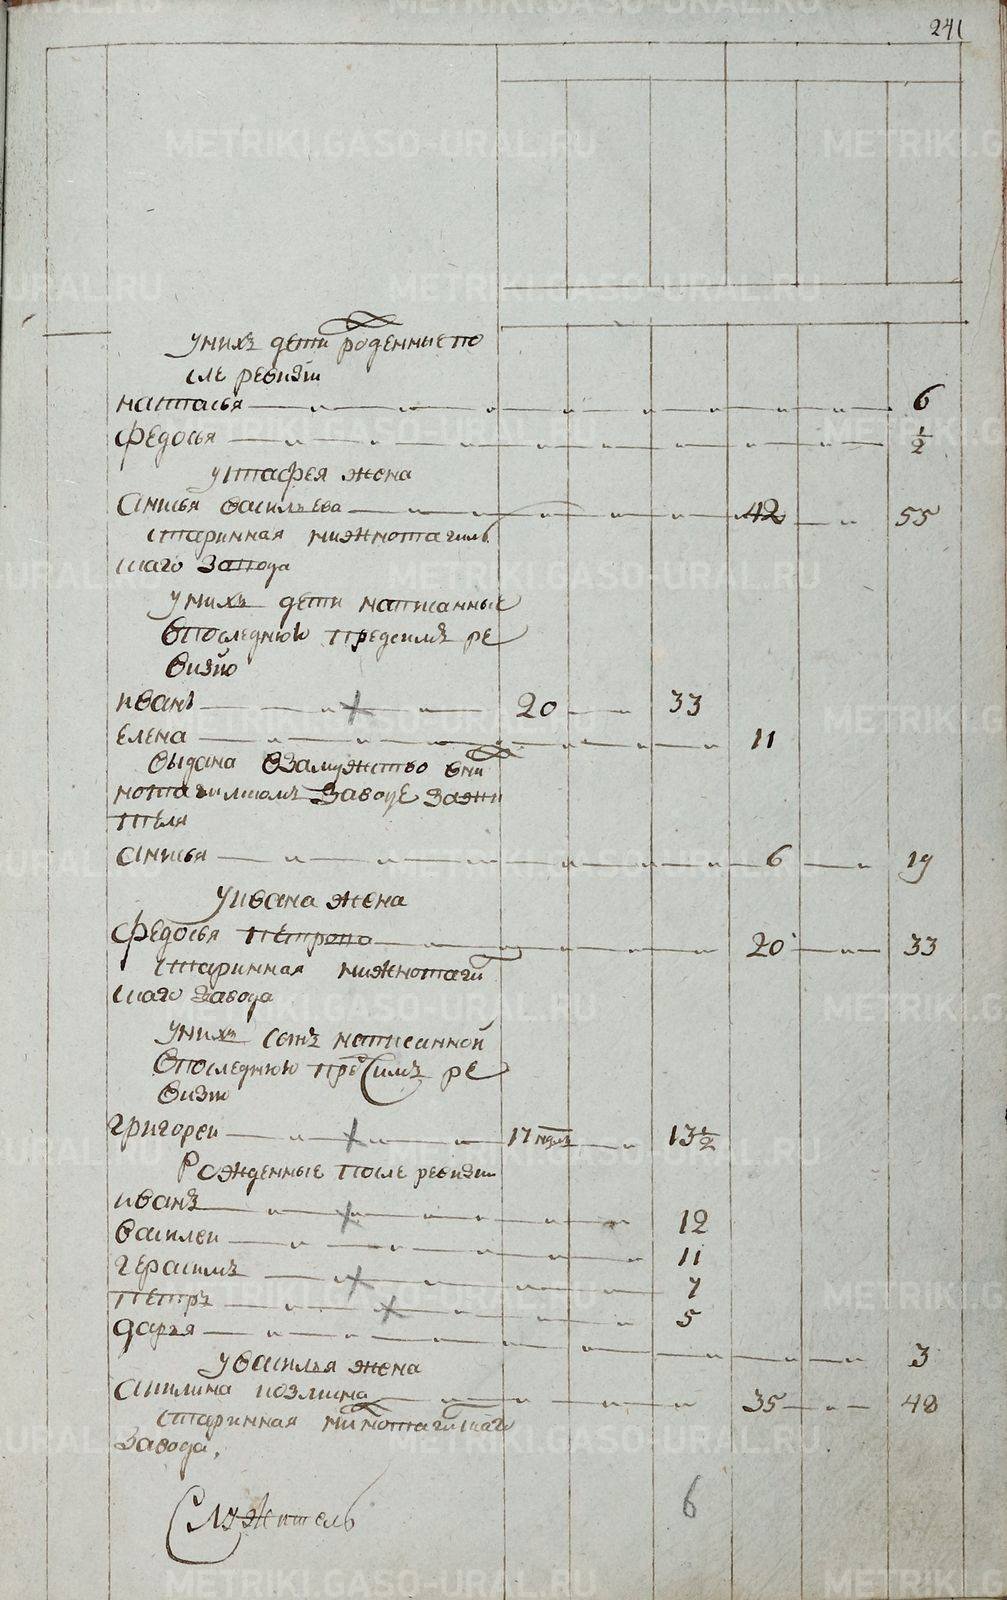 241
у нихъ дети роденные по
сле ревизи
наталья 6
федосья 1/2
у Стафея жена
Анисья васильева 42 55
старинная нижнотагиль
скаго завода
у нихъ дети написанные
в последнюю предсимъ ре
визию
иванъ 20 33
елена 11
выдана в замужство в ни
жнотагилскомъ заводе за жи
теля
анисья 6 19
у ивана жена
федосья петрова 20 33
старинная нижнотаги
лскаго завода
у нихъ сынъ написанной
в последнюю пред симъ ре
визию
григореи 17 недль 13 1/2
Рожденные после ревизии
иванъ 12
василеи 11
герасимъ 7
петръ 5
дарья 3
у василья жена
акилина козмина 35 48
старинная нижнотагилскаго
завода.
Служитель
6
METRIKI.GASO-URAL.RU